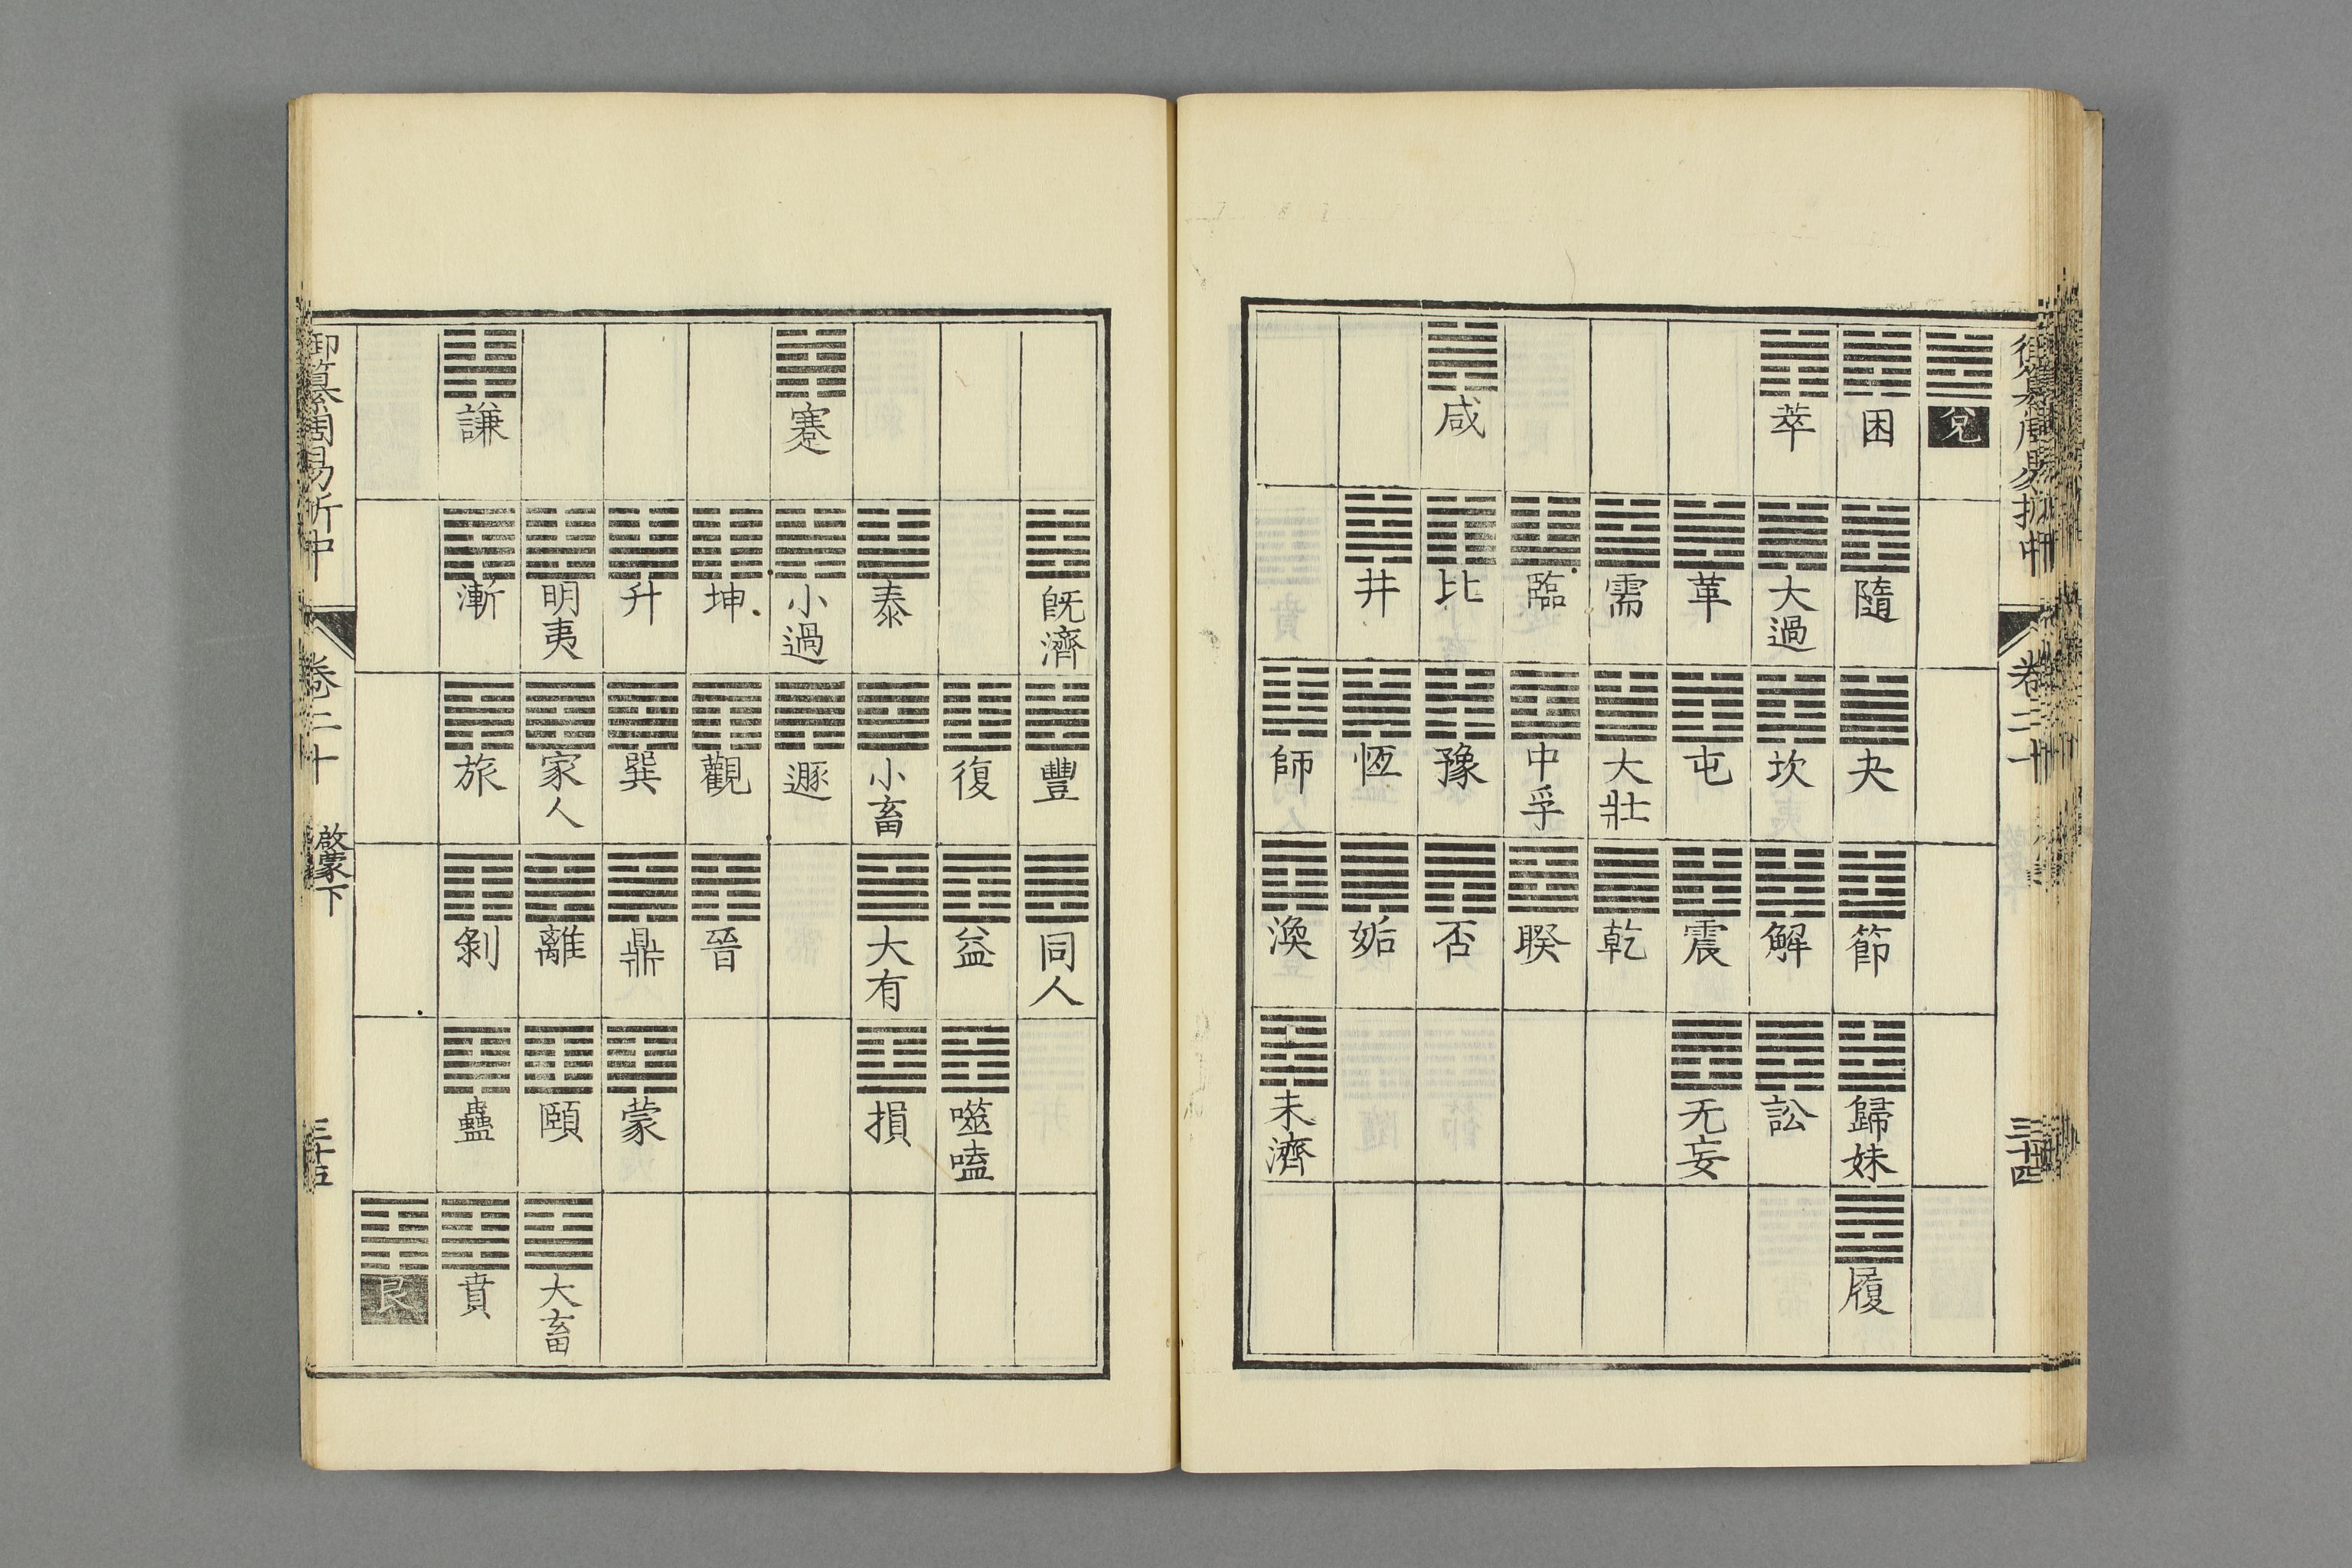 兌
困
隨
夬
節
歸妹
履
萃
大過
坎
解
訟
革
屯
震
无妄
需
大壯
乾
臨
中孚
睽
咸
比
豫
否
井
恆
姤
師
渙
未濟
卷二十
三十四
既濟
豐
同人
復
益
噬嗑
泰
小畜
大有
損
蹇
小過
遯
坤
觀
晉
升
巽
鼎
蒙
明夷
家人
離
頤
大畜
謙
漸
旅
剝
蠱
賁
艮
御纂周易折中
卷二十
啟蒙下